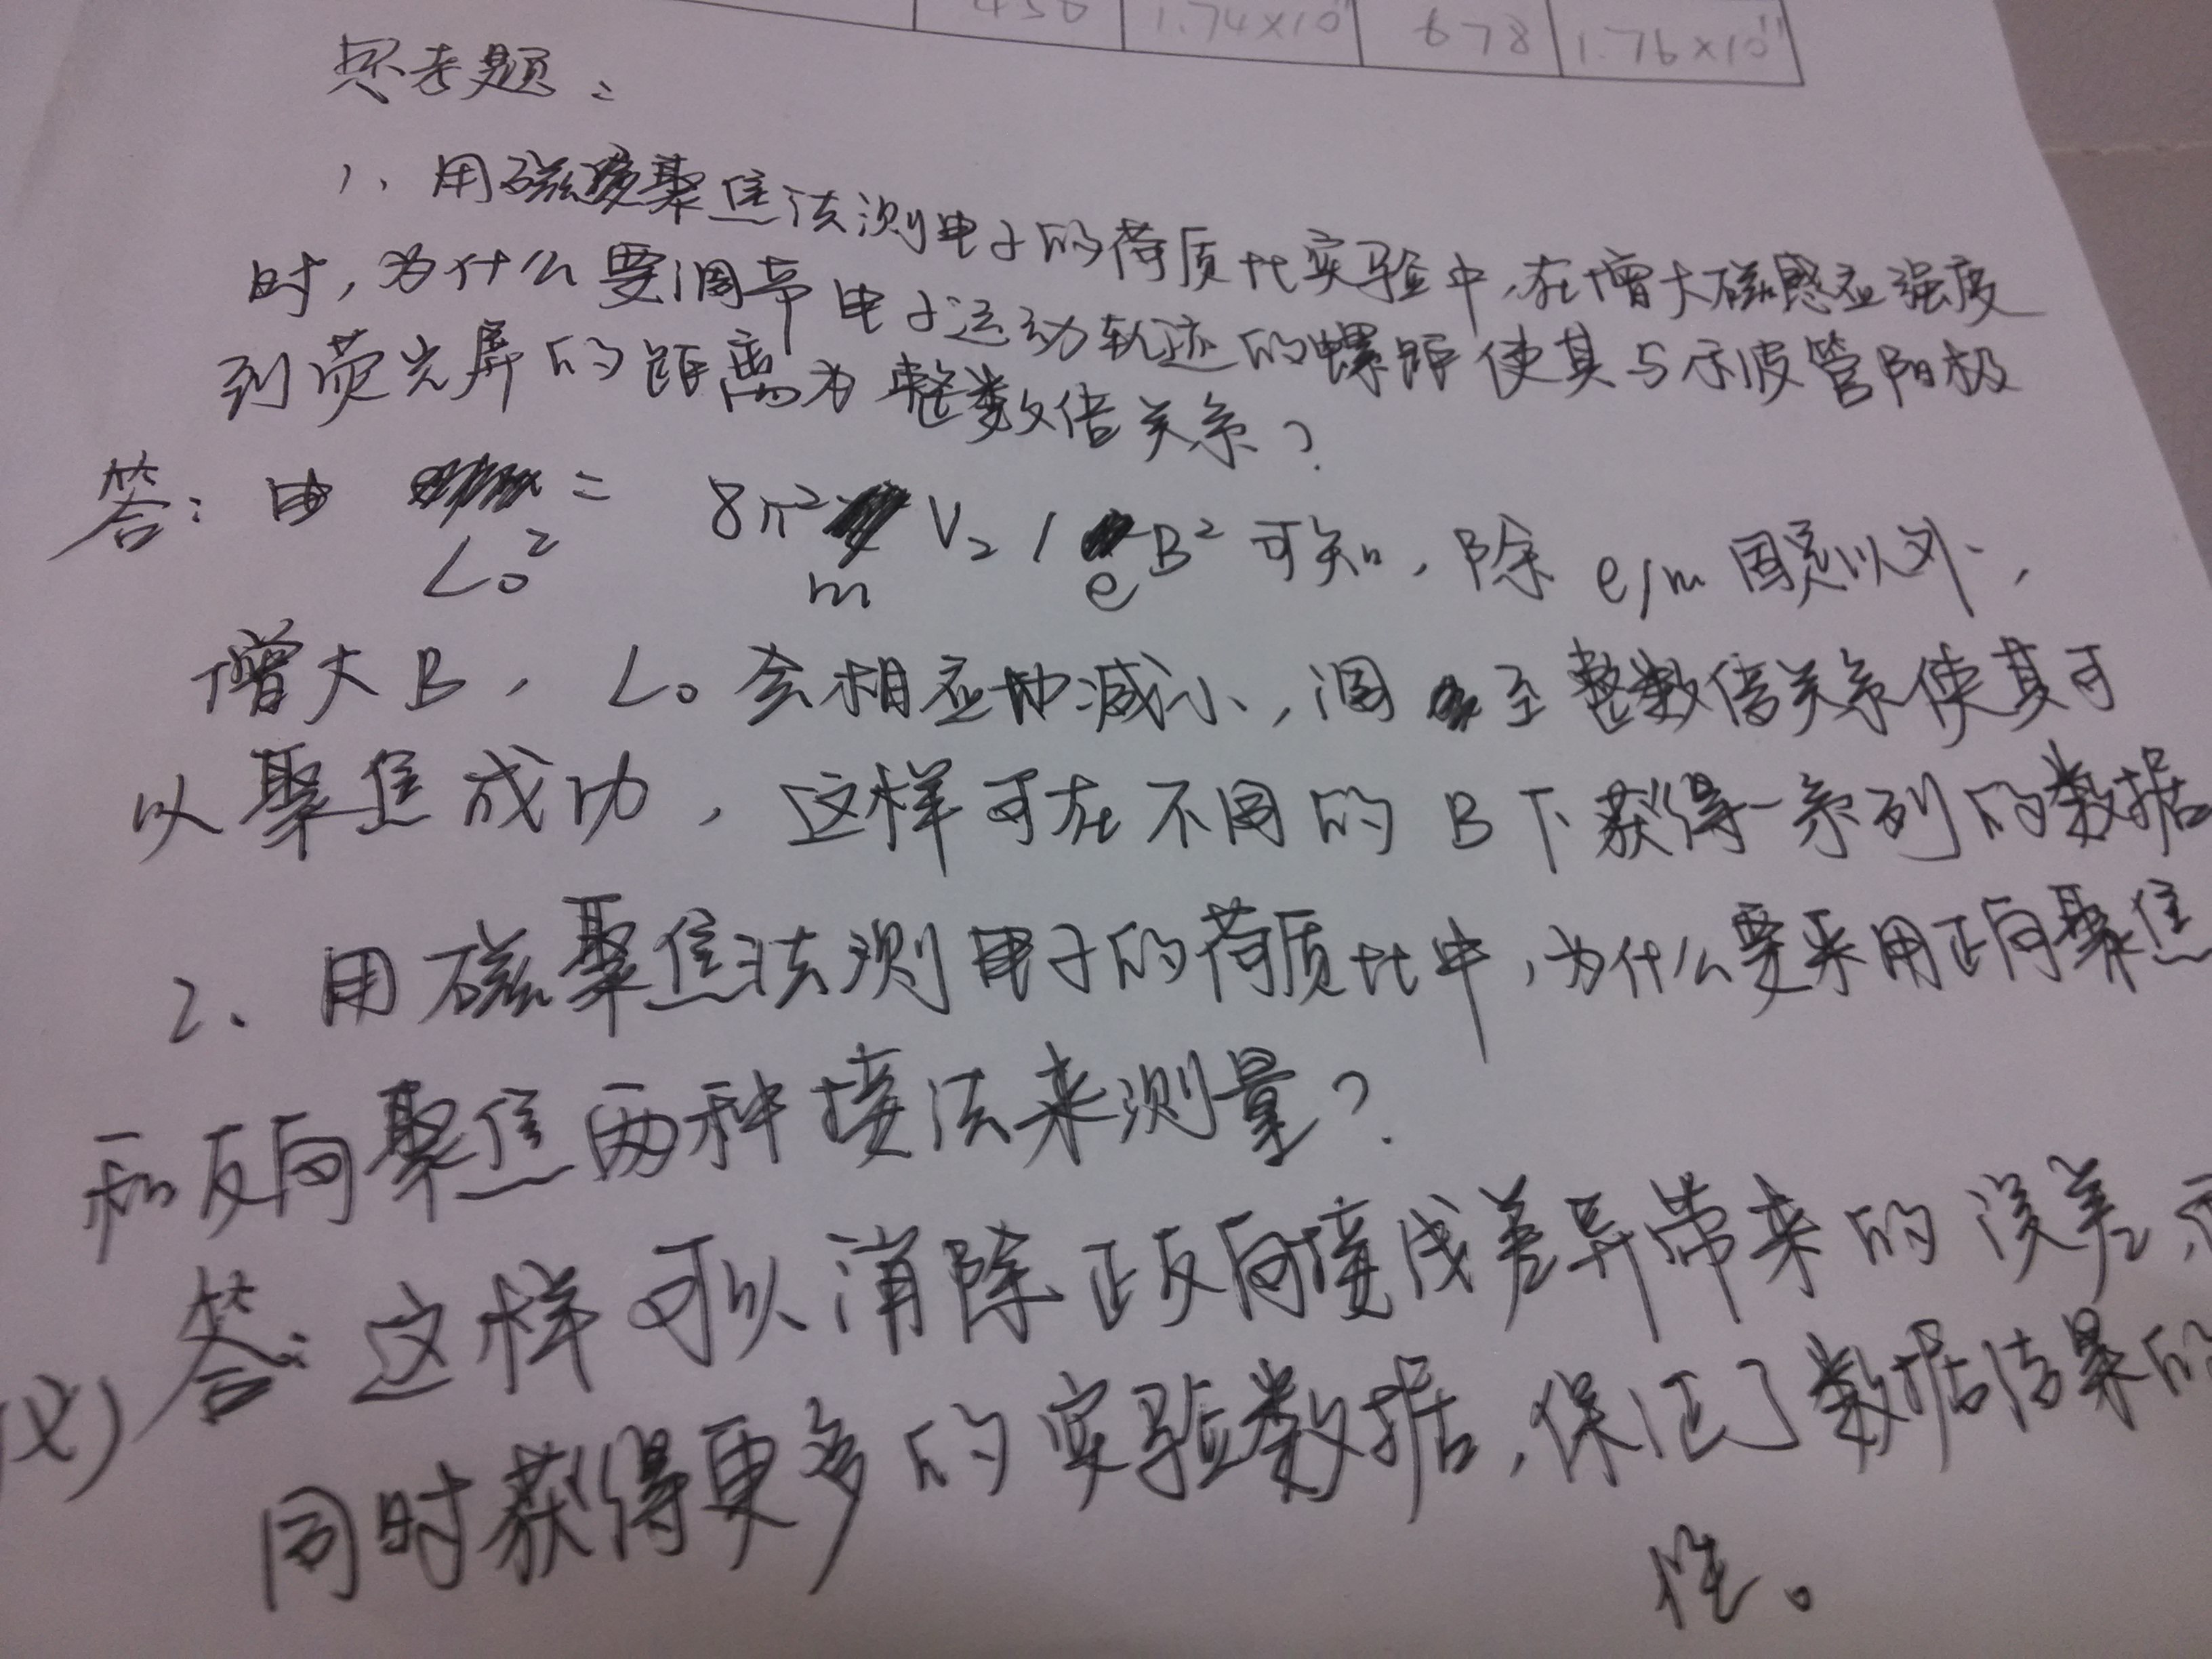 450 1.74×10¹¹ 678 1.76×10¹¹
思考题：
1、用磁聚焦法测电子的荷质比实验中，在增大磁感应强度
时，为什么要调节电子运动轨迹的螺距使其与示波管阳极
到荧光屏的距离为整数倍关系？
答：由 L₀² = 8π²mV₂/eB² 可知，除 e/m 固定以外，
增大B，L₀会相应地减小，调至整数倍关系使其可
以聚焦成功，这样可在不同的B下获得一系列的数据
2、用磁聚焦法测电子的荷质比中，为什么要采用正向聚焦
和反向聚焦两种接法来测量？
答：这样可以消除正反向接线差异带来的误差，
同时获得更多的实验数据，保证了数据结果的
性。